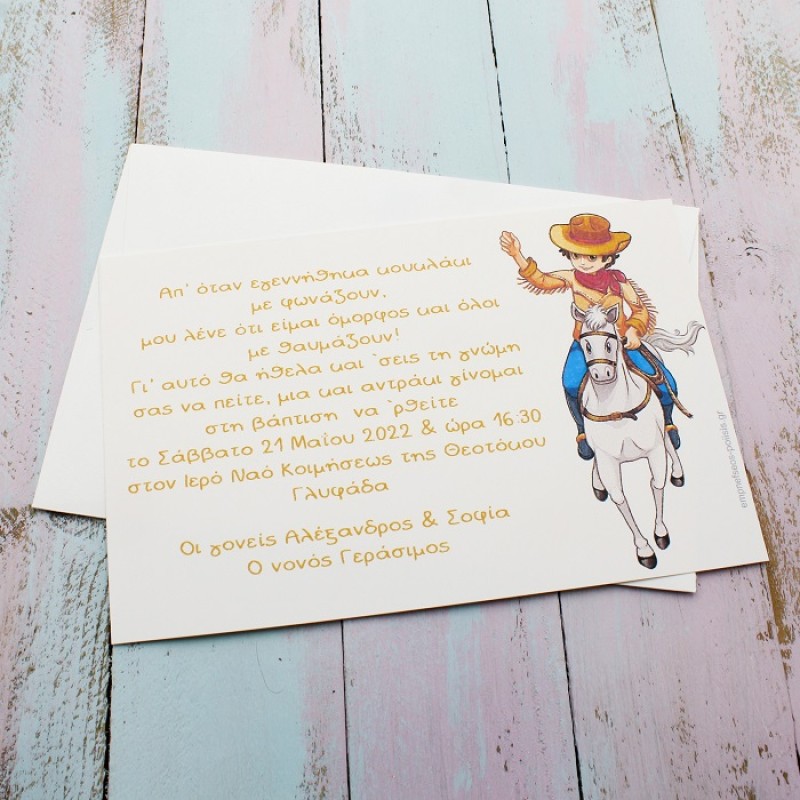 Απ' όταν εγεννήθηκα κουκλάκι
με φωνάζουν,
μου λένε ότι είμαι όμορφος και όλοι
με θαυμάζουν!
Γι' αυτό θα ήθελα και `σεις τη γνώμη
σας να πείτε, μια και αντράκι γίνομαι
στη βάπτιση να `ρθείτε
το Σάββατο 21 Μαΐου 2022 & ώρα 16:30
στον Ιερό Ναό Κοιμήσεως της Θεοτόκου
Γλυφάδα
Οι γονείς Αλέξανδρος & Σοφία
Ο νονός Γεράσιμος
empnefseos-poiisis.gr